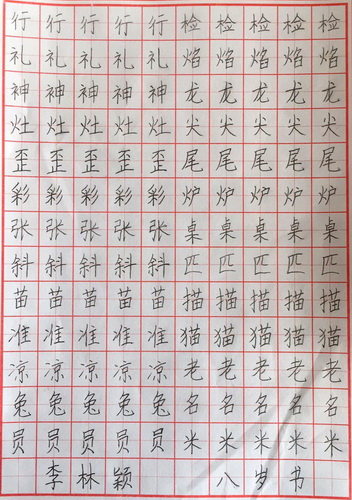 行行行行行检检检检检
礼礼礼礼礼焰焰焰焰焰
神神神神神龙龙龙龙龙
灶灶灶灶灶尖尖尖尖尖
歪歪歪歪歪尾尾尾尾尾
彩彩彩彩彩炉炉炉炉炉
张张张张张桌桌桌桌桌
斜斜斜斜斜匹匹匹匹匹
苗苗苗苗苗描描描描描
准准准准准猫猫猫猫猫
凉凉凉凉凉老老老老老
兔兔兔兔兔名名名名名
员员员员员米米米米米
李林颖 八岁书